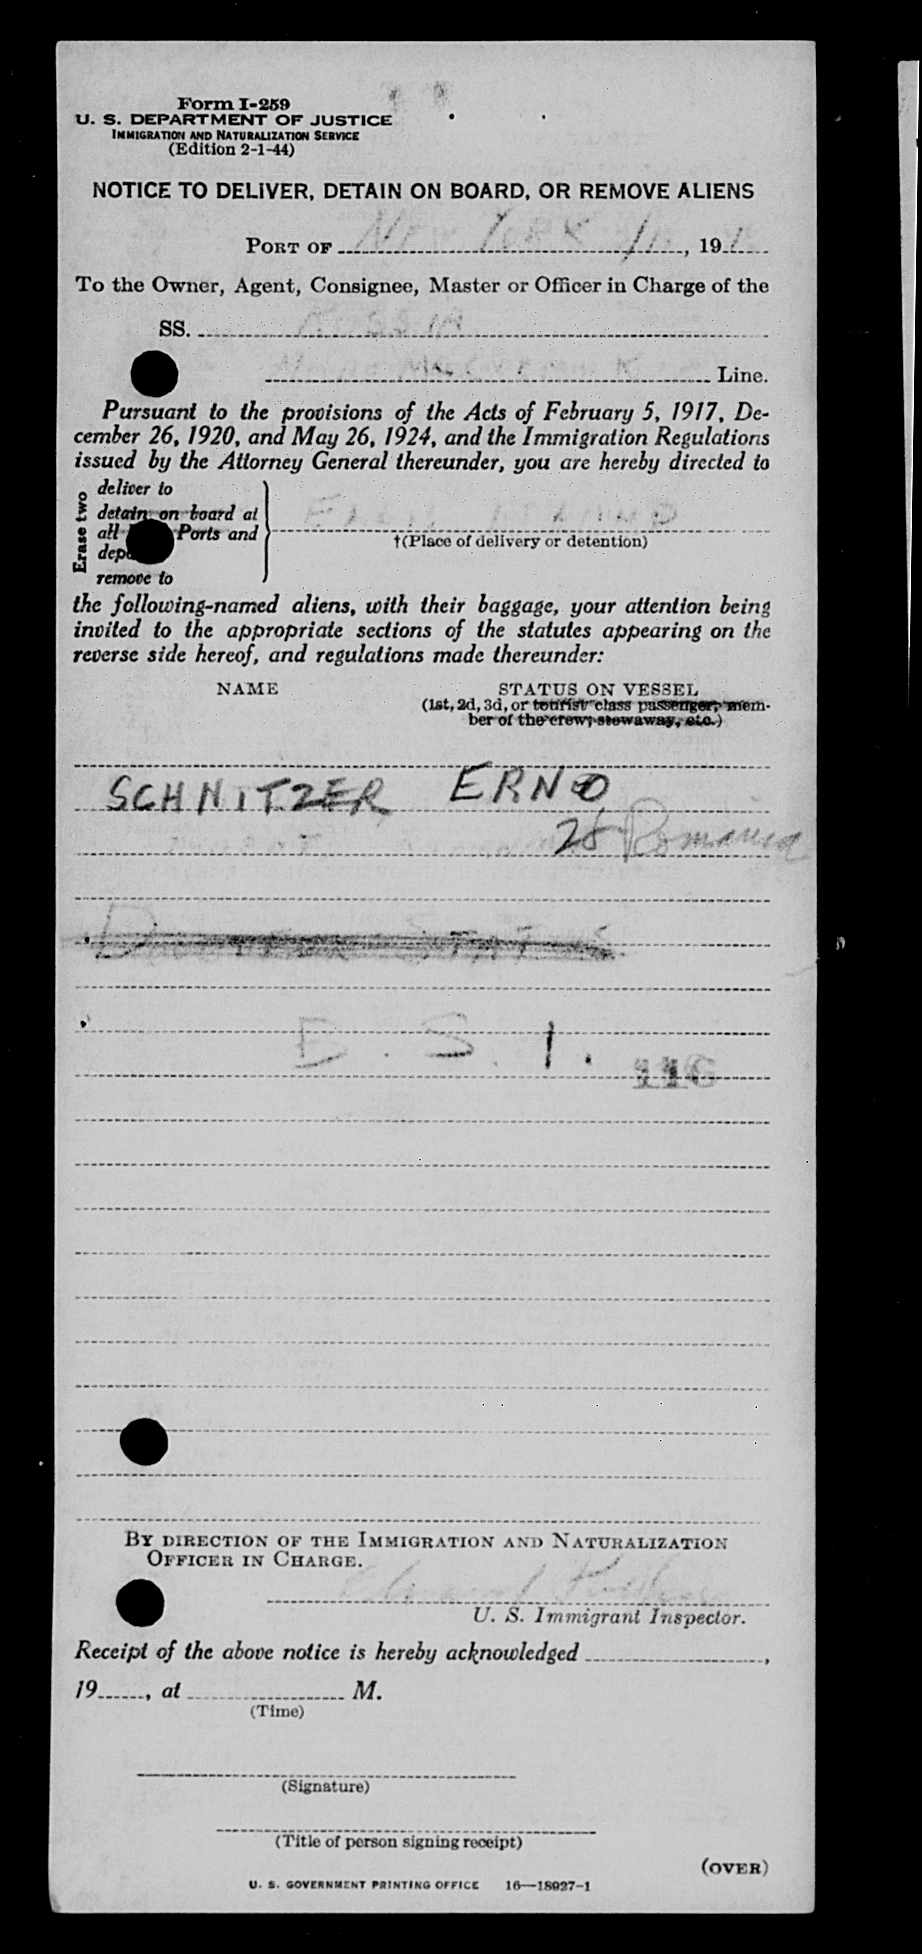 Form I-259
U. S. DEPARTMENT OF JUSTICE
IMMIGRATION AND NATURALIZATION SERVICE
(Edition 2-1-44)
NOTICE TO DELIVER, DETAIN ON BOARD, OR REMOVE ALIENS
PORT OF NEW YORK, 19
To the Owner, Agent, Consignee, Master or Officer in Charge of the
SS.
Line.
Pursuant to the provisions of the Acts of February 5, 1917, De-
cember 26, 1920, and May 26, 1924, and the Immigration Regulations
issued by the Attorney General thereunder, you are hereby directed to
Erase two
deliver to
detain on board at
all Ports and
remove to
ELLIS ISLAND
†(Place of delivery or detention)
the following-named aliens, with their baggage, your attention being
invited to the appropriate sections of the statutes appearing on the
reverse side hereof, and regulations made thereunder:
NAME STATUS ON VESSEL
(1st, 2d, 3d, or tourist class passenger, mem-
ber of the crew, stowaway, etc.)
SCHNITZER ERNO
28 Romania
B. S. I.
116
BY DIRECTION OF THE IMMIGRATION AND NATURALIZATION
OFFICER IN CHARGE.
U. S. Immigrant Inspector.
Receipt of the above notice is hereby acknowledged ,
19 , at M.
(Time)
(Signature)
(Title of person signing receipt)
(OVER)
U. S. GOVERNMENT PRINTING OFFICE 16—18927-1